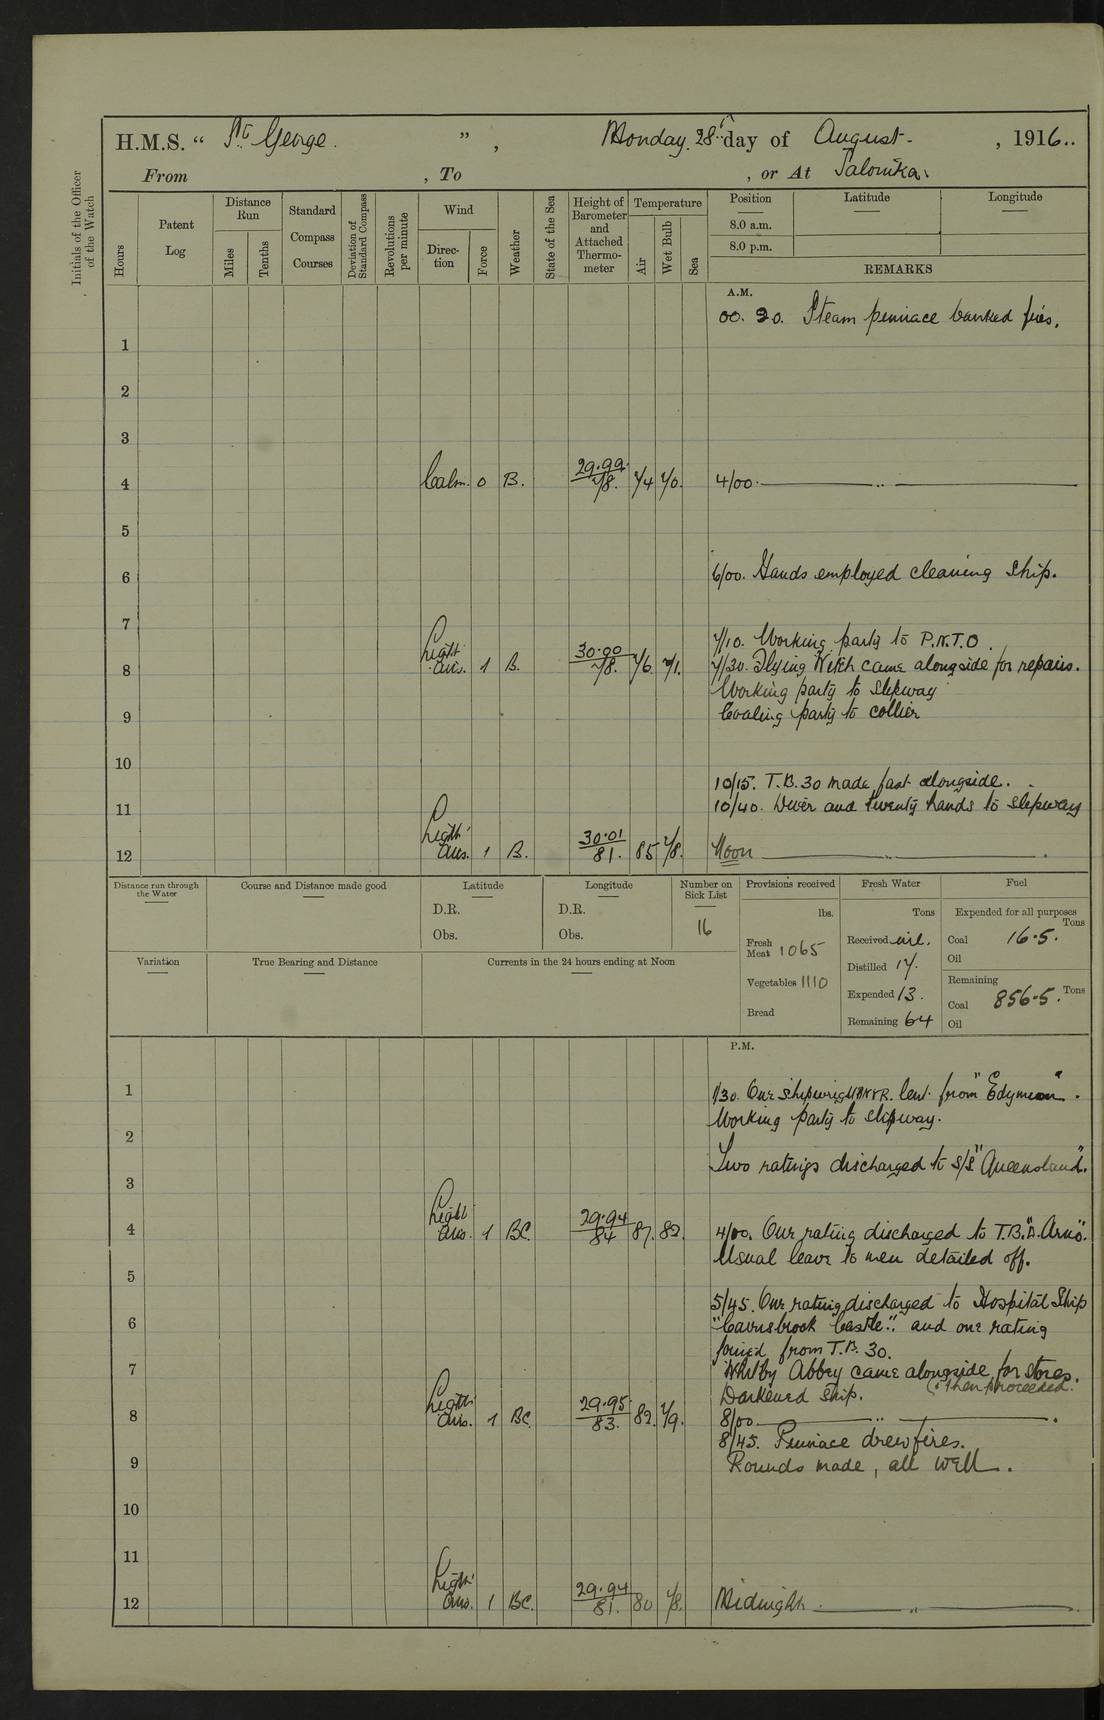 H.M.S. “ St George. ”, Monday. 28th day of August. , 1916..
From , To , or At Salonika.
Initials of the Officer of the Watch
Hours
Patent Log
Distance Run
Miles
Tenths
Standard Compass Courses
Deviation of Standard Compass
Revolutions per minute
Wind
Direction
Force
Weather
State of the Sea
Height of Barometer and Attached Thermometer
Temperature
Air
Wet Bulb
Sea
Position
Latitude
Longitude
8.0 a.m.
8.0 p.m.
REMARKS
A.M.
Steam pinnace banked fires.
1
2
3
4 Calm. 0 B. 29.99 78. 74 70. 4/00.
5
6 6/00. Hands employed cleaning Ship.
7 7/10. Working party to P.N.T.O.
8 Light airs. 1 B. 30.00 78. 76. 71. 7/30. Flying Witch came alongside for repairs.
Working party to Slipway
9 Coaling party to collier
10
10/15. T.B. 30 made fast alongside.
11 10/40. Diver and twenty hands to slipway
12 Light airs. 1 B. 30.01 81. 85 78. Noon
Distance run through the Water
Course and Distance made good
Latitude
D.R.
Obs.
Longitude
D.R.
Obs.
Number on Sick List
16
Provisions received
lbs.
Fresh Meat 1065
Vegetables 1110
Bread
Fresh Water
Tons
Received nil.
Distilled 17.
Expended 13.
Remaining 64
Fuel
Expended for all purposes
Tons
Coal 16.5.
Oil
Remaining
Coal 856.5. Tons
Oil
Variation
True Bearing and Distance
Currents in the 24 hours ending at Noon
P.M.
1 1/30. One shipwright RNVR. lent from "Edymion".
Working party to slipway.
2
Two ratings discharged to S/S "Queensland".
3
4 Light airs. 1 BC. 29.94 84 87. 82. 4/00. One rating discharged to T.B. "D. Arno".
Usual leave to men detailed off.
5
5/45. One rating discharged to Hospital Ship
6 "Carisbrook Castle". and one rating
joined from T.B. 30.
7 Whitby Abbey came alongside for stores.
Darkened Ship. (& then proceeded.
8 Light airs. 1 BC. 29.95 83. 82. 79. 8/00
8/45. Pinnace drew fires.
9 Rounds made, all well.
10
11
12 Light airs. 1 BC. 29.94 81. 80 78. Midnight.